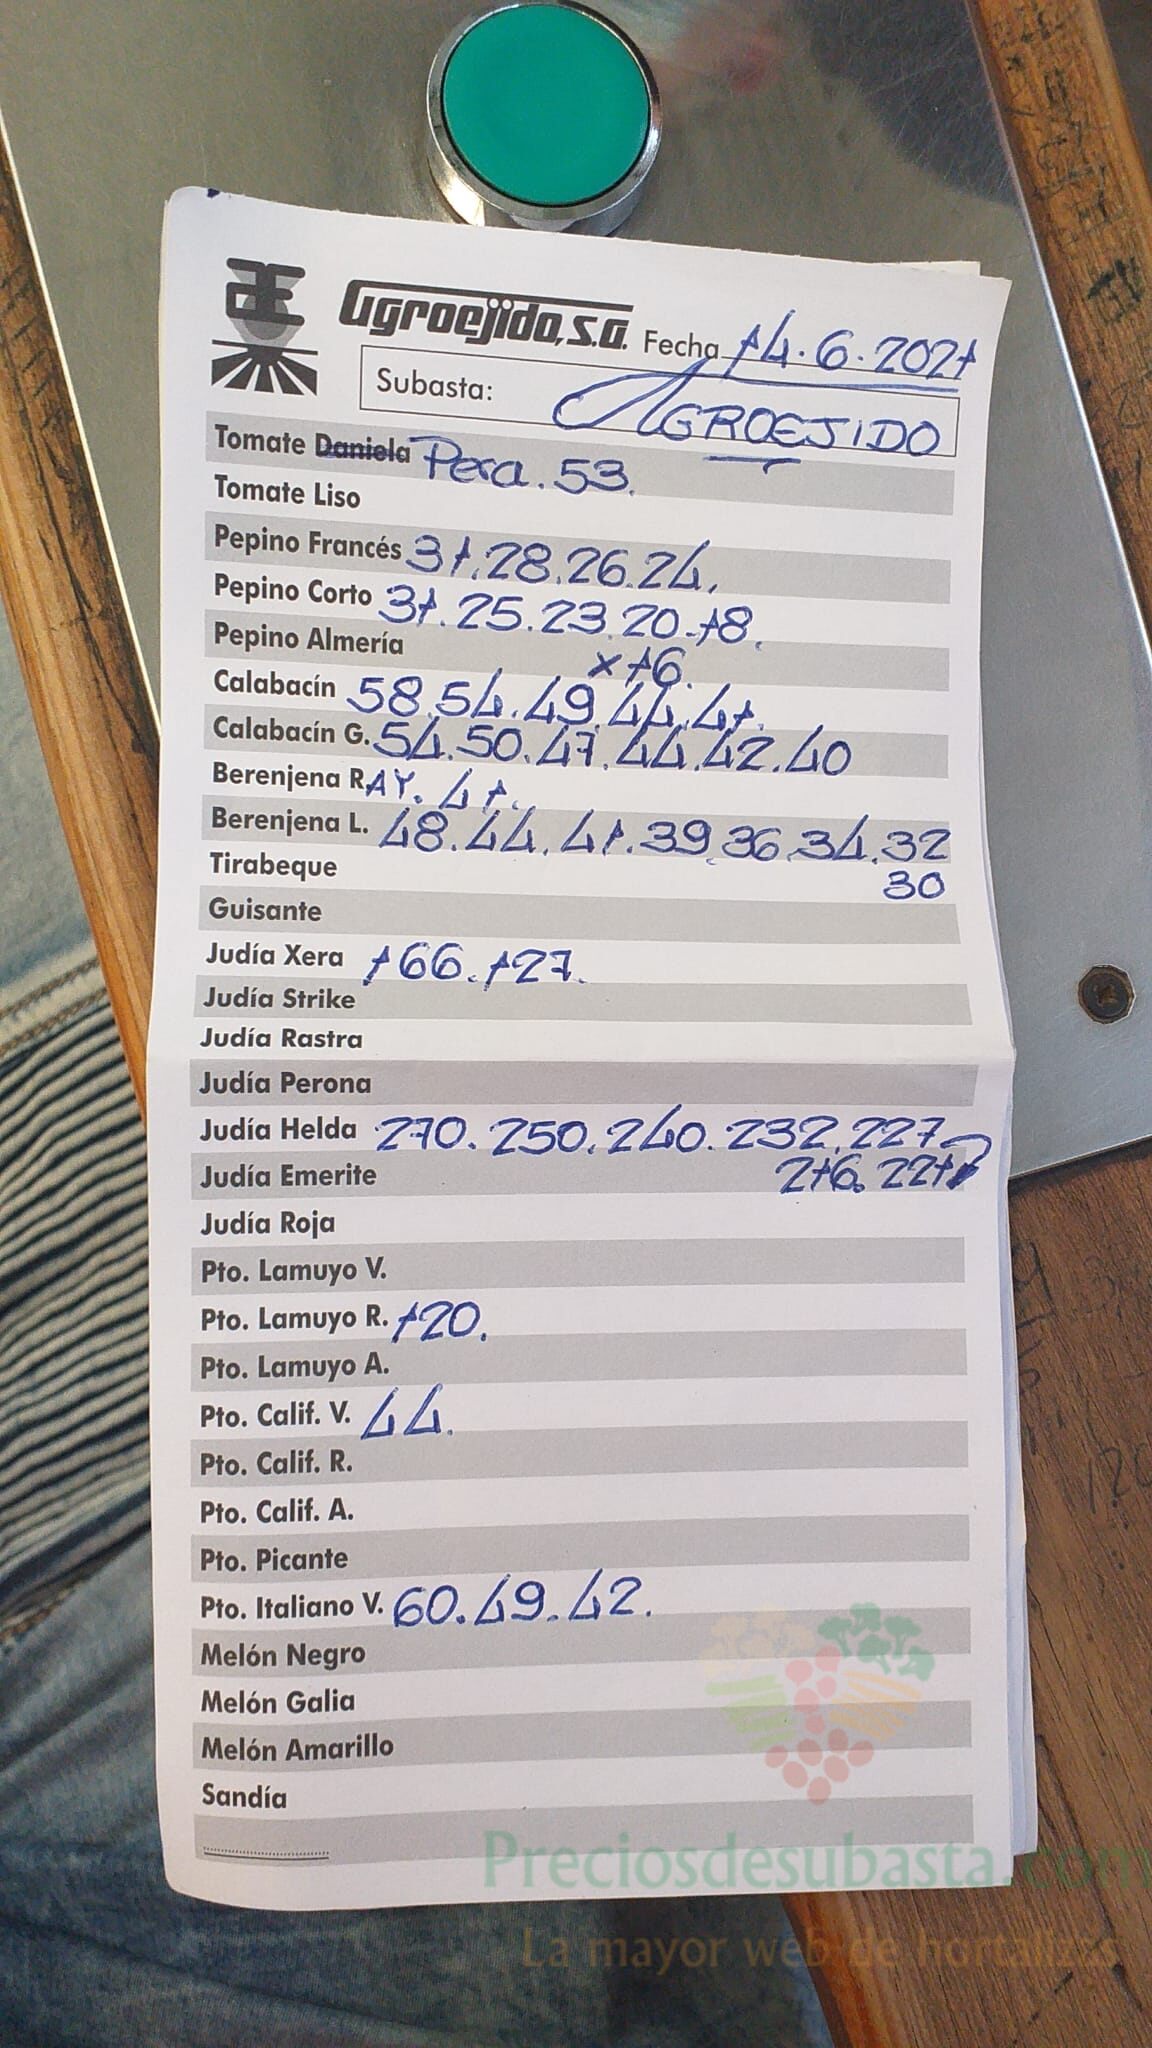 Æ
agroejido, s.a. Fecha 14.6.2021
Subasta: AGROEJIDO
Tomate Daniela Pera. 53.
Tomate Liso
Pepino Francés 31.28.26.24.
Pepino Corto 31.25.23.20.18.
Pepino Almería x 16.
Calabacín 58.54.49.44.41.
Calabacín G. 54.50.47.44.42.40
Berenjena R. AY. 41.
Berenjena L. 48.44.41.39.36.34.32
Tirabeque 30
Guisante
Judía Xera 166.127.
Judía Strike
Judía Rastra
Judía Perona
Judía Helda 270.250.240.232.227
Judía Emerite 216. 221
Judía Roja
Pto. Lamuyo V.
Pto. Lamuyo R. 120.
Pto. Lamuyo A.
Pto. Calif. V. 44.
Pto. Calif. R.
Pto. Calif. A.
Pto. Picante
Pto. Italiano V. 60.49.42.
Melón Negro
Melón Galia
Melón Amarillo
Sandía
Preciosdesubasta.com
La mayor web de hortalizas